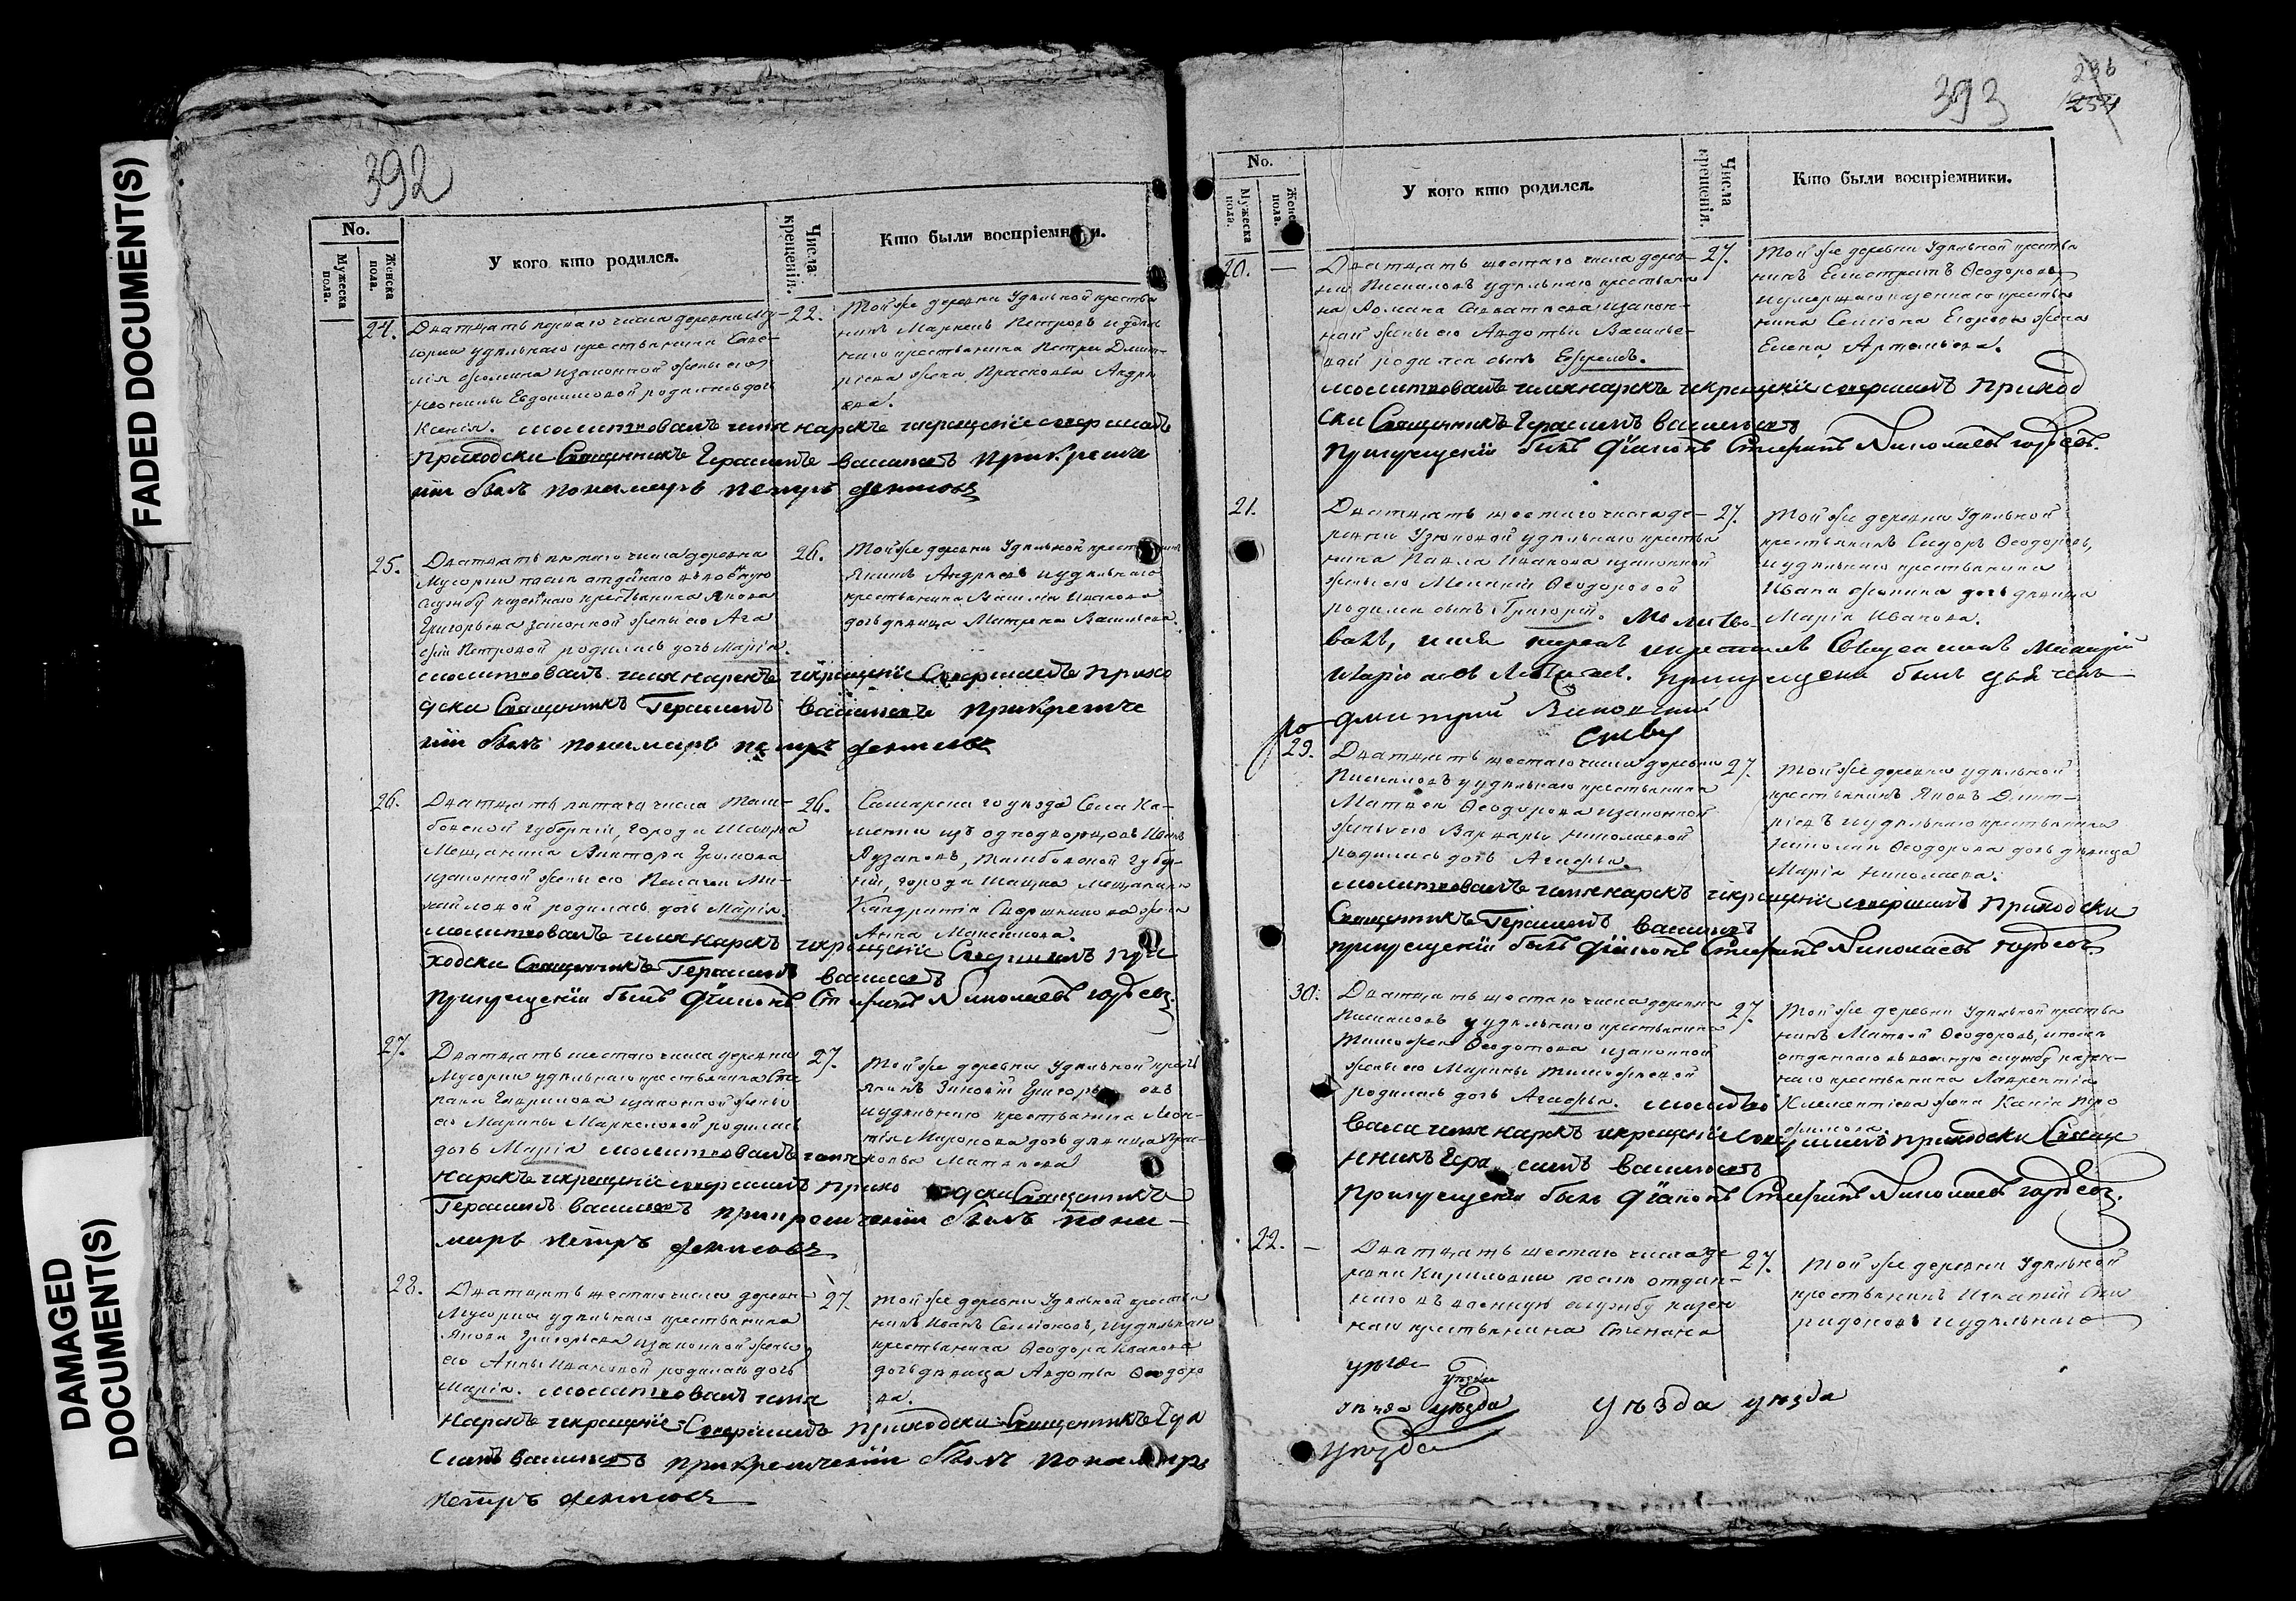 FADED DOCUMENT(S)
DAMAGED
DOCUMENT(S)
392
No.
Мужеска пола.
Женска пола.
У кого кто родился.
Числа крещенія.
Кто были воспріемники.
24.
Дватцать перваго числа деревни Му-
сорки удельнаго крестьянина Саве-
лія Фомина изаконной жены его
Евдокимовой родилась дочь
Ксенія. молитвовалъ имя нарекъ икрещеніе совершалъ
приходски Священникъ Герасимъ Васильевъ прикреще
ніи былъ пономарь петръ денисовъ
22.
Той же деревни Удельной крестья
нинъ Маркелъ Петровъ иудель
наго крестьянина Петра Дмит-
ріева жена Прасковья Андре
ева.
25.
Дватцать пятаго числа деревни
Мусорки после отданаго въ военную
службу казеннаго крестьянина Якова
Григорьева законной жены его Ага
фіи Петровой родилась дочь Марія.
молитвовалъ имя нарекъ икрещеніе Совершалъ прихо
дски Священникъ Герасимъ Васильевъ прикреще
ніи былъ пономарь петръ денисовъ
26.
Той же деревни Удельной крестьянинъ
Андреевъ иудельнаго
крестьянина Василія Иванова
дочь девица Матрена Васильева.
26.
Дватцать пятаго числа Там-
бовской губерніи, города Шацка
Мещанина Виктора Громова
изаконной жены его Пелагеи Ми-
хайловой родилась дочь Марія.
молитвовалъ имя нарекъ икрещеніе Совершалъ при
ходски Священникъ Герасимъ Васильевъ
прикрещеніи былъ дїаконъ Стефанъ Николаевъ
26.
Самарскаго уезда Села Ка-
менки изъ однодворцовъ Иванъ
Тамбовской губер-
ніи, города Шацка Мещанина
Кандратія жена
Анна Максимова.
27.
Дватцать шестаго числа деревни
Мусорки удельнаго крестьянина Сте
пана Гаврилова изаконной жены
его Марины Маркеловой родилась
дочь Марія молитвовалъ имя
нарекъ икрещеніе совершалъ прихо дски Священникъ
Герасимъ Васильевъ прикрещеніи былъ поно-
марь петръ денисовъ
27.
Той же деревни Удельной кресть
янинъ Зиновій Григорьевъ
иудельнаго крестьянина Леон-
тія Миронова дочь девица Прас-
ковья Матвеева
28.
Дватцать шестаго числа деревни
Мусорки удельнаго крестьянина
Якова Григорьева изаконной жены
его Анны Ивановой родилась дочь
Марія. молитвовалъ имя
нарекъ икрещеніе Совершалъ приходски Священникъ Гера
симъ Васильевъ прикрещеніи былъ пономарь
петръ денисовъ
27.
Той же деревни Удельной крестья
нинъ Иванъ Семіоновъ, иудельнаго
крестьянина Феодора Иванова
дочь девица Авдотья Феодоро
ва.
393
236
No.
Мужеска пола.
Женска пола.
У кого кто родился.
Числа крещенія.
Кто были воспріемники.
20.
Дватцать шестаго числа дерев-
ни Пискаловъ удельнаго крестьяни
на Романа изакон-
ной жены его Авдотьи Василье-
вой родился сынъ Ефремъ.
молитвовалъ имя нарекъ икрещеніе совершалъ приход
ски Священникъ Герасимъ Васильевъ
прикрещеніи былъ дїаконъ Стефанъ Николаевъ
27.
Той же деревни Удельной крестья
нинъ Елистратъ Феодоровъ,
иумершаго казеннаго крестья
нина Семіона Егорова жена
Елена Артемьева.
21.
Дватцать шестаго числа де-
ревни Узюковой удельнаго крестья
нина Павла Иванова изаконной
жены его Меланіи Феодоровой
родился сынъ Григорій. Молитво-
валъ, имя нарекъ икрестилъ Священникъ
прикрещеніи былъ дьячекъ
Дмитрий
27.
Той же деревни Удельной
крестьянинъ Сидоръ Феодоровъ,
иудельнаго крестьянина
Ивана Фомина дочь девица
Марія Иванова.
29.
Дватцать шестаго числа деревни
Пискаловъ удельнаго крестьянина
Матвея Феодорова изаконной
жены его Варвары Николаевой
родилась дочь Агафья.
молитвовалъ имя нарекъ икрещеніе совершалъ приходски
Священникъ Герасимъ Васильевъ
прикрещеніи былъ дїаконъ Стефанъ Николаевъ
27.
Той же деревни удельной
крестьянинъ Яковъ Дмит-
ріевъ иудельнаго крестьянина
Николая Феодорова дочь девица
Марія Николаева.
30.
Дватцать шестаго числа деревни
Пискаловъ удельнаго крестьянина
Тимофея Федотова изаконной
жены его Марины Тимофеевой
родилась дочь Агафья. молитво
валъ имя нарекъ икрещеніе совершалъ приходски Свяще
нникъ Герасимъ Васильевъ
прикрещеніи былъ дїаконъ Стефанъ Николаевъ
27.
Той же деревни Удельной крестья
нинъ Матвей Феодоровъ, ипосля
отданнаго въ военную службу казен-
наго крестьянина Лаврентія
Климентіева жена
22.
Дватцать шестаго числа де
ревни Кириловки после отдан-
наго въ военную службу казен
наго крестьянина Степана
27.
Той же деревни Удельной
крестьянинъ Игнатій Спи
ридоновъ иудельнаго
уезда
уезда уезда
уезда